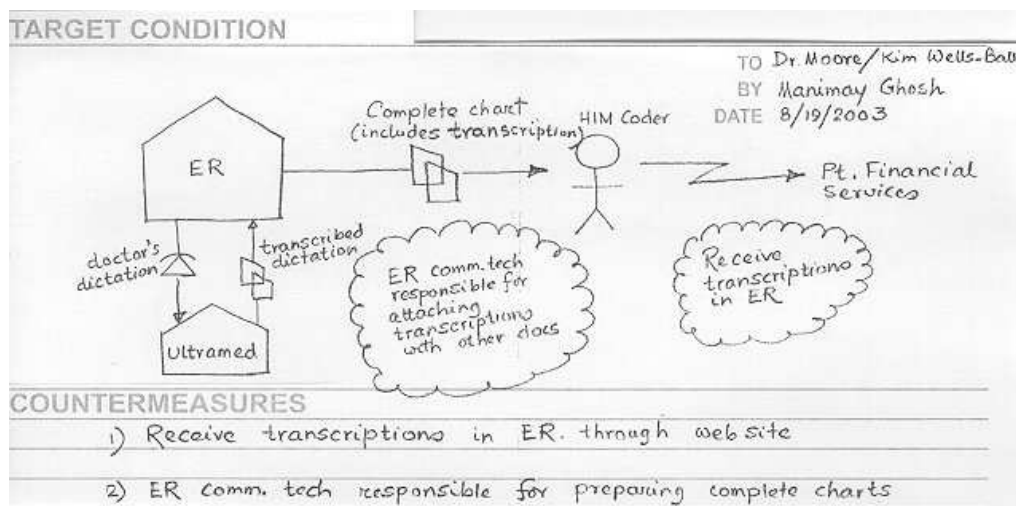 TARGET CONDITION
TO Dr. Moore/Kim Wells-Ball
BY Manimay Ghosh
DATE 8/19/2003
Complete chart
(includes transcription)
HIM Coder
ER
Pt. Financial
Services
doctor's
dictation
transcribed
dictation
Ultramed
ER comm. tech
responsible for
attaching
transcriptions
with other docs
Receive
transcriptions
in ER
COUNTERMEASURES
1) Receive transcriptions in ER. through web site
2) ER comm. tech responsible for preparing complete charts